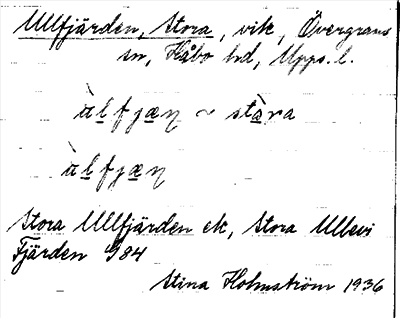 Ullfjärden, Stora, vik, Övergrans
sn, Håbo hd, Upps. l.
ùlfjæn ~ stàra
ùlfjæn
Stora Ullfjärden ek, Stora Ullevi
Fjärden 984
Stina Holmström 1936